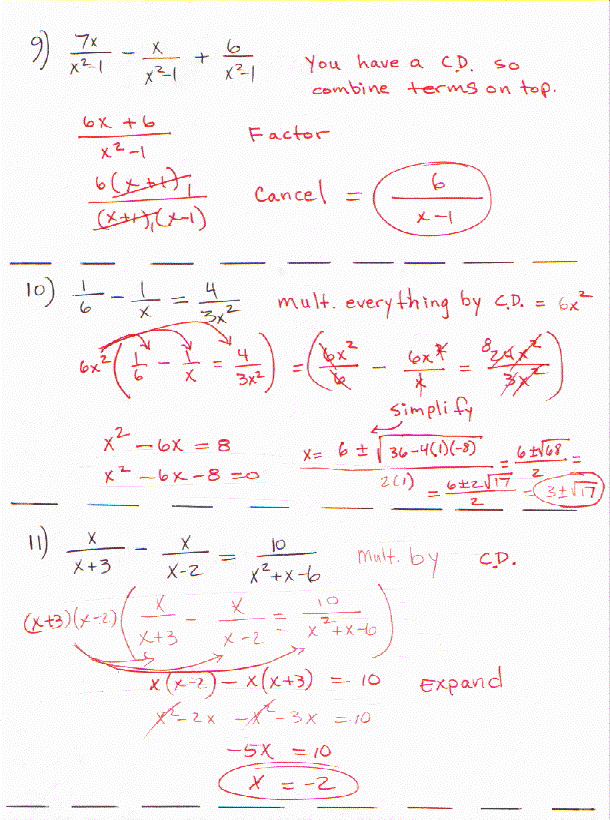 9) 7x/(x²-1) - x/(x²-1) + 6/(x²-1) You have a C.D. so
combine terms on top.
(6x + 6)/(x² - 1) Factor
6(x+1) 1/(x+1) 1 (x-1) Cancel = 6/(x-1)
10) 1/6 - 1/x = 4/3x² mult. everything by C.D. = 6x²
6x² (1/6 - 1/x = 4/3x²) = (6x²/6 - 6x²/x = 8 24x²/3x²)
simplify
x² - 6x = 8 x = (6 ± √(36-4(1)(-8)))/2(1) = (6±√68)/2 =
x² - 6x - 8 = 0 = (6±2√17)/2 = 3±√17
11) x/(x+3) - x/(x-2) = 10/(x²+x-6) Mult. by C.D.
(x+3)(x-2) (x/(x+3) - x/(x-2) = 10/(x²+x-6))
x(x-2) - x(x+3) = 10 Expand
x² - 2x - x² - 3x = 10
-5x = 10
x = -2